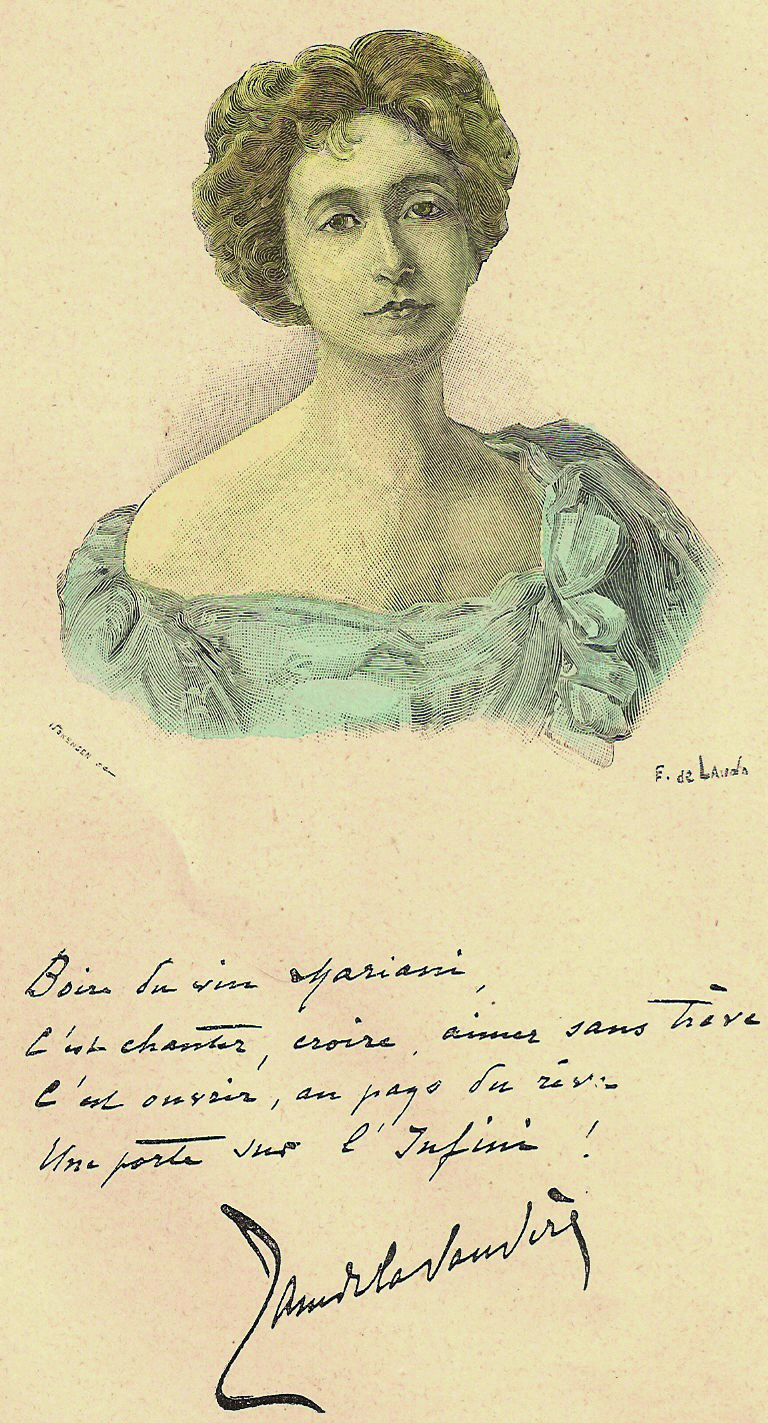 SORENSEN SC
F. de Lauda
Boire du vin Mariani,
C'est chanter, croire, aimer sans trève
C'est ouvrir, au pays du rêve
Une porte sur l'Infini !
Jane de la Vaudère